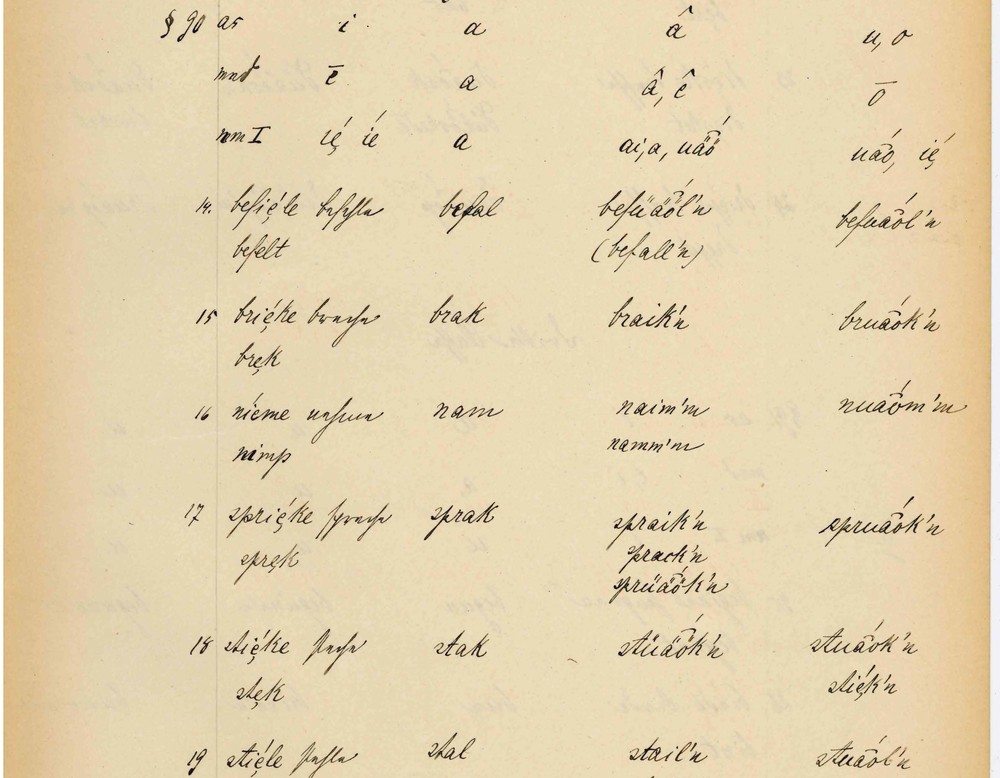 § 90 as i a â u, o
mnd ē a â, ê ō
mm I ię́ íe a ai, a, üä̂ö́ uâó, ię́
14. befię́le befehle befal befüä̂ö́l'n befuâól'n
befelt (befall'n)
15 brię́ke breche brak braik'n bruâók'n
bręk
16 níeme nehme nam naim'm nuâóm'm
nimp namm'm
17 sprię́ke spreche sprak spraik'n spruâók'n
spręk sprack'n
sprüä̂ö́k'n
18 stię́ke steche stak stüä̂ö́k'n stuâók'n
stęk stię́k'n
19 stię́le stehle stal stail'n stuâól'n